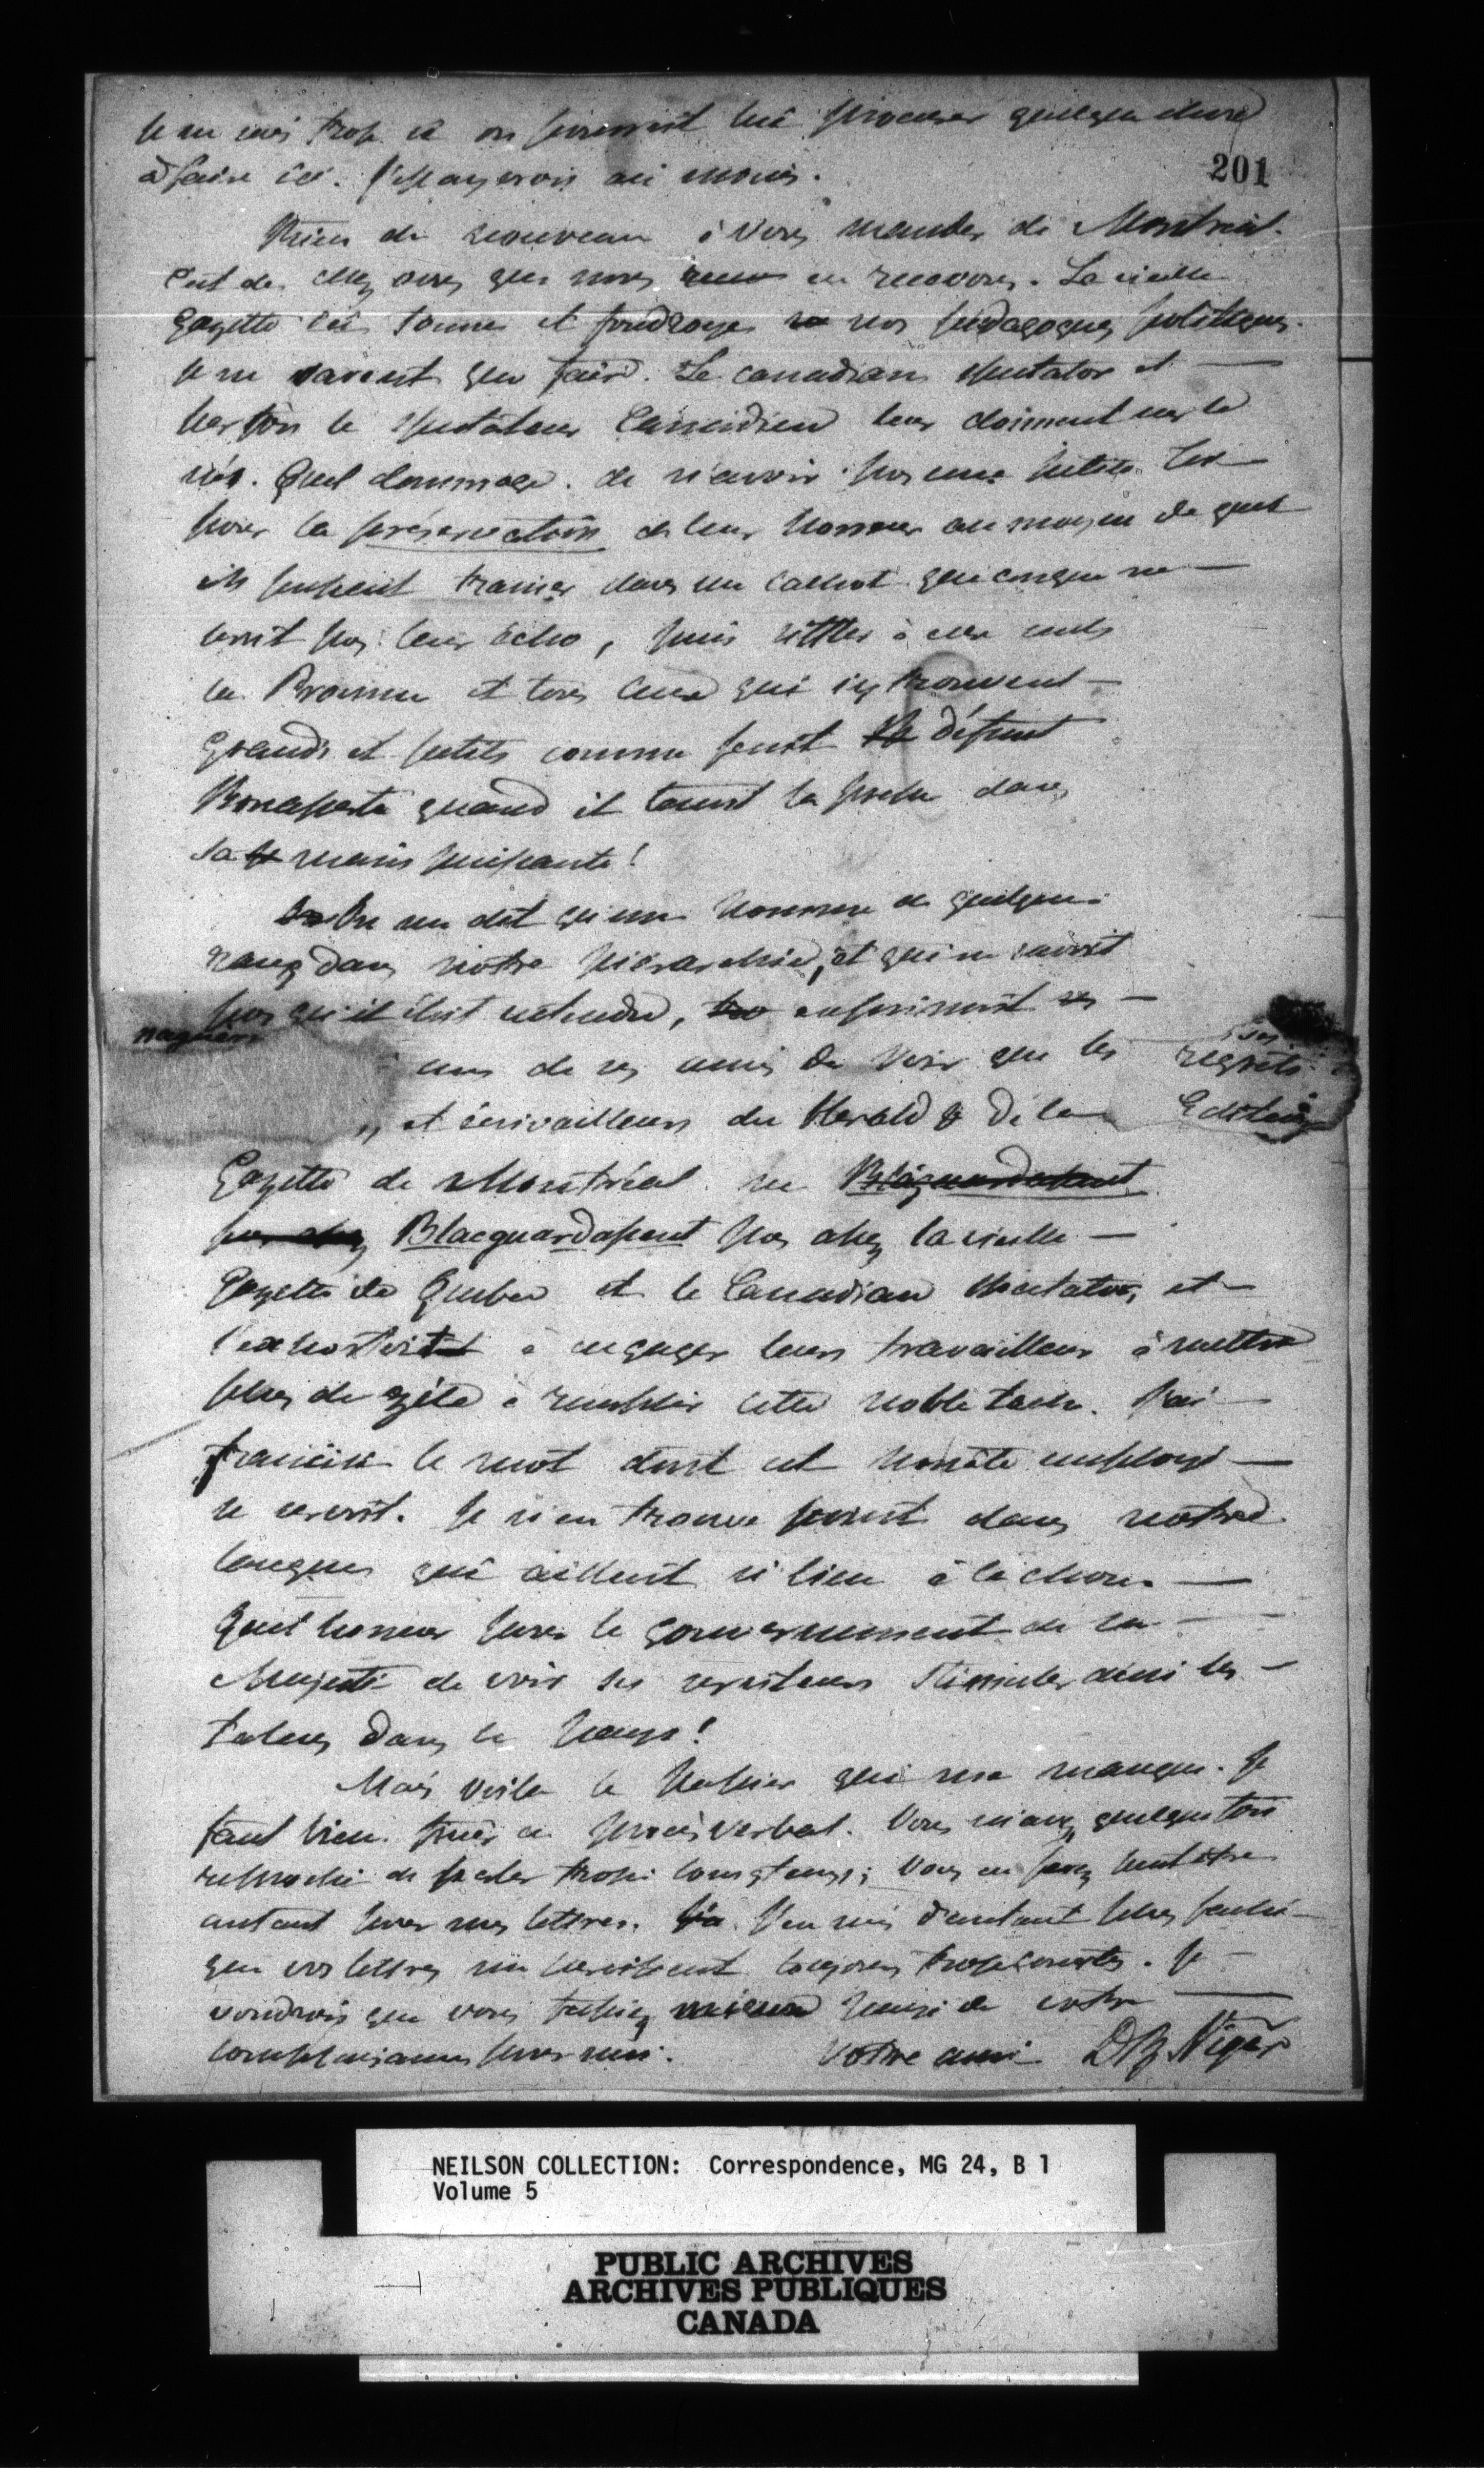 Je ne sais trop si on pourroit lui procurer quelque chose
201
à faire ici. J'essayerois au moins.
Rien de nouveau à vous mander de Montréal.
C'est de chez vous que nous en recevons. La vieille
Gazette ici tonne et foudroye nos pédagogues politiques.
Je ne savent que faire. Le Canadian Spectator et
le Spectateur Canadien leur donnent sur le
nés. Quel dommage de n'avoir pas une petite loi
pour la préservation de leur honneur au moyen de quoi
ils pussent trainer dans un cachot quiconque ne
seroit pas leur écho, puis siffler à eux seuls
la Province et tous ceux qui s'y trouvent
grands et petits comme feroit défunt
Bonaparte quand il tenoit la presse dans
sa main puissante!
On me dit qu'un homme de quelque
rang dans notre hierarchie, et qui ne savoit
pas qu'il étoit entendu, exprimoit
naguère
uns de ses amis de voir que les
ses
regrets
et écrivailleurs du Herald & de la
Editeurs
Gazette de Montréal ne Blacguardassent
Blacguardassent pas assez la vieille
Gazette de Quebec et le Canadian Spectator, et
l'exhortoit à engager leurs travailleurs à mettre
plus de zèle à remplir cette noble tache. J'ai
francisé le mot dont cet honnête employé
se servit. Je n'en trouve point dans notre
langue qui aillent si bien à la chose.
Quel honneur pour le gouvernement de sa
Majesté de voir ses serviteurs stimuler ainsi les
talens dans le pays!
Mais voila le papier qui me manque. Il
faut bien finir ce procès verbal. Vous m'avez quelquefois
reproché de parler trop longtemps; vous en ferez peut être
autant pour mes lettres. J'en suis d'autant plus faché
que vos lettres me paroissent toujours trop courtes. Je
voudrois que vous fassiez mieux de votre
complaisance pour moi.
Votre ami DB Viger
NEILSON COLLECTION: Correspondence, MG 24, B 1
Volume 5
PUBLIC ARCHIVES
ARCHIVES PUBLIQUES
CANADA